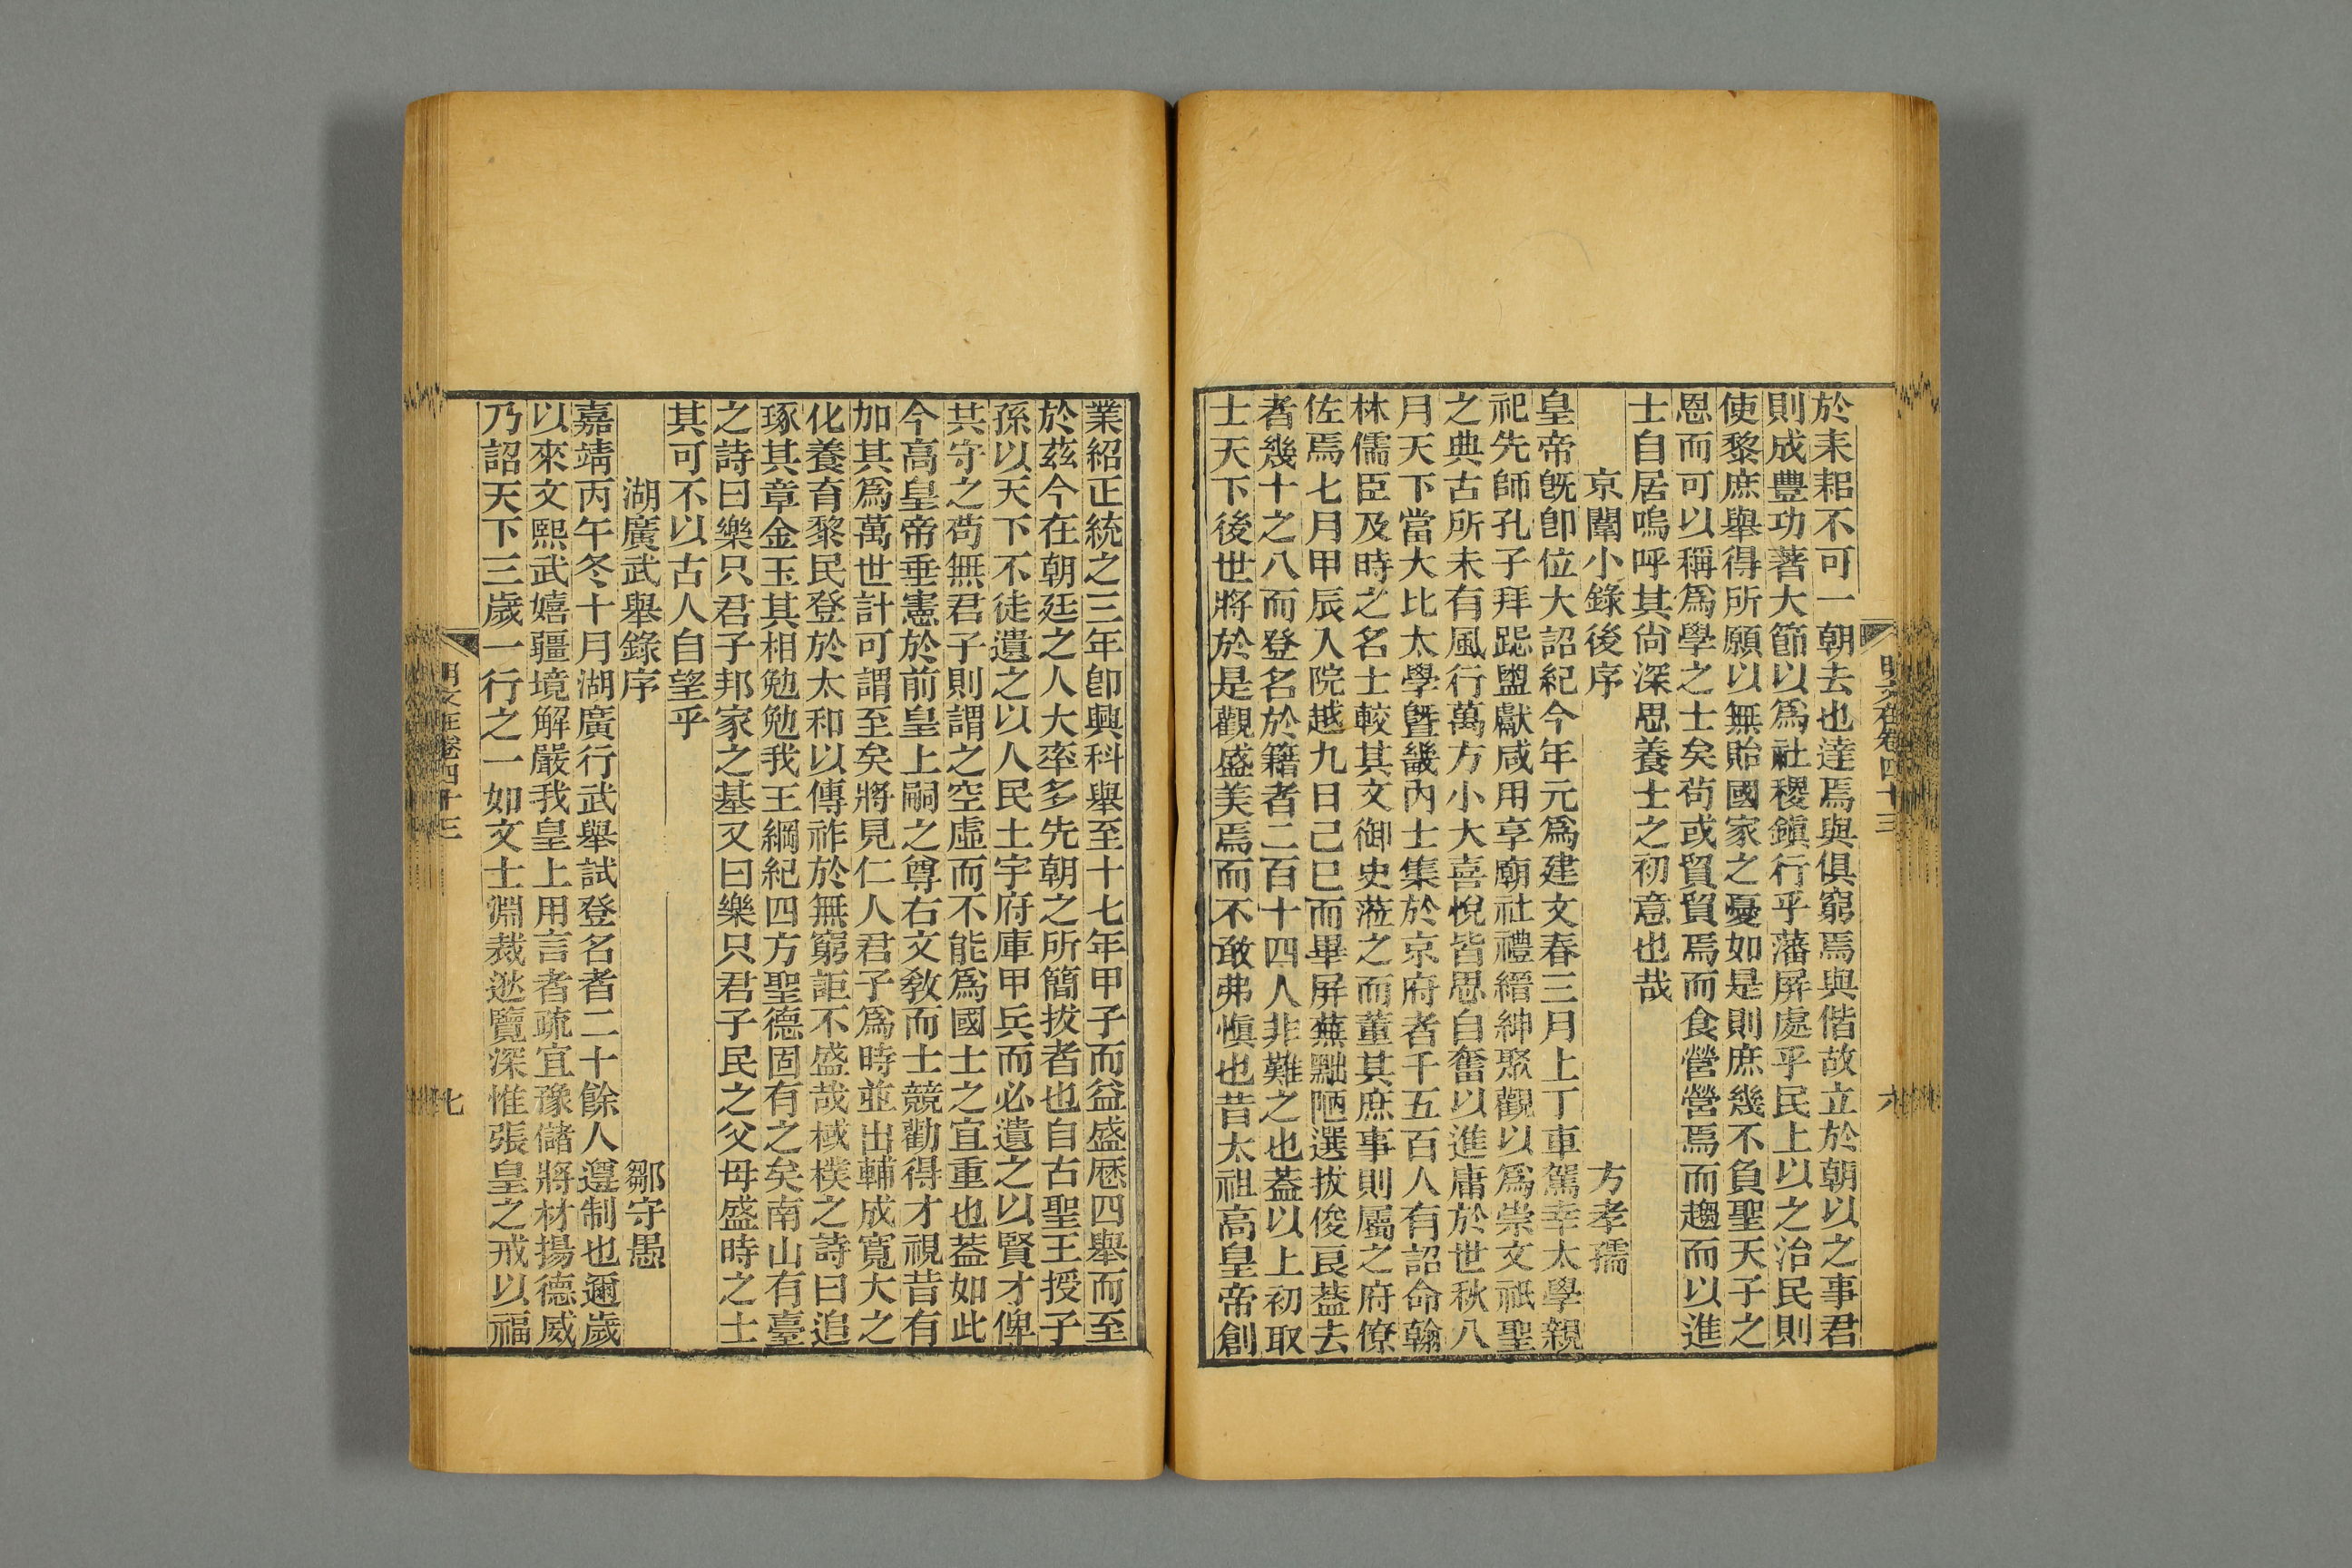 於耒耜不可一朝去也達焉與俱窮焉與偕故立於朝以之事君
則成豐功著大節以爲社稷鎭行乎藩屏處乎民上以之治民則
使黎庶舉得所願以無貽國家之憂如是則庶幾不負聖天子之
恩而可以稱爲學之士矣苟或貿貿焉而食營營焉而趨而以進
士自居嗚呼其尙深思養士之初意也哉
京闈小錄後序 方孝孺
皇帝旣卽位大詔紀今年元爲建文春三月上丁車駕幸太學親
祀先師孔子拜跽盥獻咸用享廟社禮縉紳聚觀以爲崇文祇聖
之典古所未有風行萬方小大喜悅皆思自奮以進庸於世秋八
月天下當大比太學曁畿內士集於京府者千五百人有詔命翰
林儒臣及時之名士較其文御史蒞之而董其庶事則屬之府僚
佐焉七月甲辰入院越九日己巳而畢屏蕪黜陋選拔俊良葢去
者幾十之八而登名於籍者二百十四人非難之也葢以上初取
士天下後世將於是觀盛美焉而不敢弗愼也昔太祖高皇帝創
明文在卷四十三 六
業紹正統之三年卽興科舉至十七年甲子而益盛歷四舉而至
於茲今在朝廷之人大率多先朝之所簡拔者也自古聖王授子
孫以天下不徒遺之以人民土宇府庫甲兵而必遺之以賢才俾
共守之苟無君子則謂之空虛而不能爲國士之宜重也葢如此
今高皇帝垂憲於前皇上嗣之尊右文敎而士競勸得才視昔有
加其爲萬世計可謂至矣將見仁人君子爲時並出輔成寬大之
化養育黎民登於太和以傳祚於無窮詎不盛哉棫樸之詩曰追
琢其章金玉其相勉勉我王綱紀四方聖德固有之矣南山有臺
之詩曰樂只君子邦家之基又曰樂只君子民之父母盛時之士
其可不以古人自望乎
湖廣武舉錄序 鄒守愚
嘉靖丙午冬十月湖廣行武舉試登名者二十餘人遵制也邇歲
以來文熙武嬉疆境解嚴我皇上用言者疏宜豫儲將材揚德威
乃詔天下三歲一行之一如文士淵裁逖覽深惟張皇之戒以福
明文在卷四十三 七